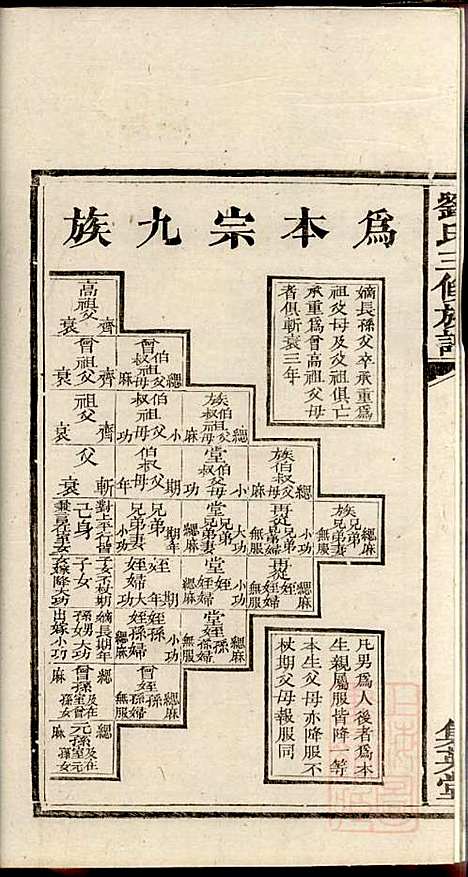 為本宗九族
嫡長孫父卒承重為
祖父母及父祖俱亡
承重為曾高祖父母
者俱斬衰三年
高祖父
齊衰
曾伯叔祖父母
緦麻
曾祖父
齊衰
族伯叔祖父母
緦麻
伯叔祖父母
小功
祖父
齊衰
族伯叔父母
緦麻
堂伯叔父母
小功
伯叔父母
期年
父
斬衰
族兄弟
兄弟妻
緦麻
無服
再從兄弟
兄弟妻
小功
無服
堂兄弟
兄弟妻
大功
緦麻
兄弟
兄弟妻
期年
小功
己身
再從姪
姪婦
緦麻
無服
堂姪
姪婦
小功
緦麻
姪
姪婦
期年
大功
子女
堂姪孫
孫婦
緦麻
無服
姪孫
孫婦
小功
緦麻
孫男
曾姪孫
孫婦
緦麻
無服
曾孫
緦麻
元孫
緦麻
凡男為人後者為本
生親屬服皆降一等
本生父母亦降服不
杖期父母報服同
劉氏三修族譜
集英堂